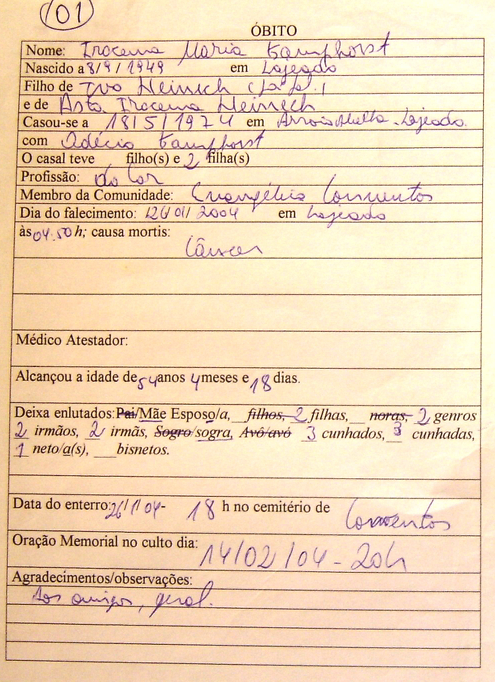 (01)
ÓBITO
Nome: Iracema Maria Kamphorst
Nascido a 8/9/1949 em Lajeado
Filho de Ivo Heinrich
e de Asta Iracema Heinrich
Casou-se a 18/5/1974 em Arroio Lajeado
com Kamphorst
O casal teve filho(s) e 2 filha(s)
Profissão: do Lar
Membro da Comunidade: Evangélica Conventos
Dia do falecimento: 26/01/2004 em Lajeado
às 04.50 h; causa mortis:
Câncer
Médico Atestador:
Alcançou a idade de 54 anos 4 meses e 18 dias.
Deixa enlutados: Pai/Mãe Esposo/a, __ filhos, 2 filhas, __ noras, 2 genros
2 irmãos, 2 irmãs, Sogro/sogra, Avô/avó 3 cunhados, 3 cunhadas,
1 neto/a(s), ___ bisnetos.
Data do enterro: 26/1/04- 18 h no cemitério de Conventos
Oração Memorial no culto dia: 14/02/04 - 20h
Agradecimentos/observações:
Aos amigos, geral.